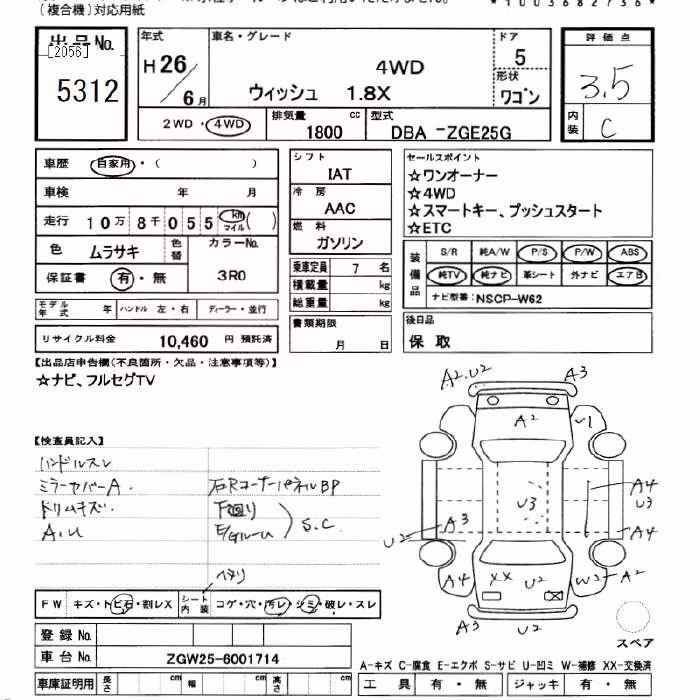 (複合機)対応用紙
*1003682736*
出品No.
[2056]
5312
年式
H26
6月
車名・グレード
4WD
ウィッシュ 1.8X
ドア
5
形状
ワゴン
2WD・4WD
排気量 cc
1800
型式
DBA-ZGE25G
評価点
3.5
内装
C
車歴 自家用・( )
車検 年 月
走行 10万8千055 km マイル ( )
色 ムラサキ 色替
カラーNo.
3R0
保証書 有・無
モデル年式 年 ハンドル 左・右 ディーラー・並行
リサイクル料金 10,460 円 預託済
シフト
IAT
冷房
AAC
燃料
ガソリン
乗車定員 7 名
積載量 kg
総重量 kg
書類期限
月 日
セールスポイント
☆ワンオーナー
☆4WD
☆スマートキー、プッシュスタート
☆ETC
装備品
S/R 純A/W P/S P/W ABS
純TV 純ナビ 革シート 外ナビ エアB
ナビ型番:NSCP-W62
後日品
保 取
【出品店申告欄(不良箇所・欠品・注意事項等)】
☆ナビ、フルセグTV
【検査員記入】
ハンドルスレ
ミラーカバーA.
石Rコーナーパネル BP
ドリムキズ.
下回り
A.U
E/gルーム
S.C.
ヘタリ
FW キズ・トビ石・割レX
シート内装 コゲ・穴・汚レ・シミ・破レ・スレ
登録No.
車台No. ZGW25-6001714
車庫証明用 長さ cm 幅 cm 高さ cm
A2.U2
A3
A2
U1
U3
A4
U3
A3
U2
A4
A4
XX
U2
W2
A2
A3
U2
スペア
A-キズ C-腐食 E-エクボ S-サビ U-凹ミ W-補修 XX-交換済
工具 有・無 ジャッキ 有・無